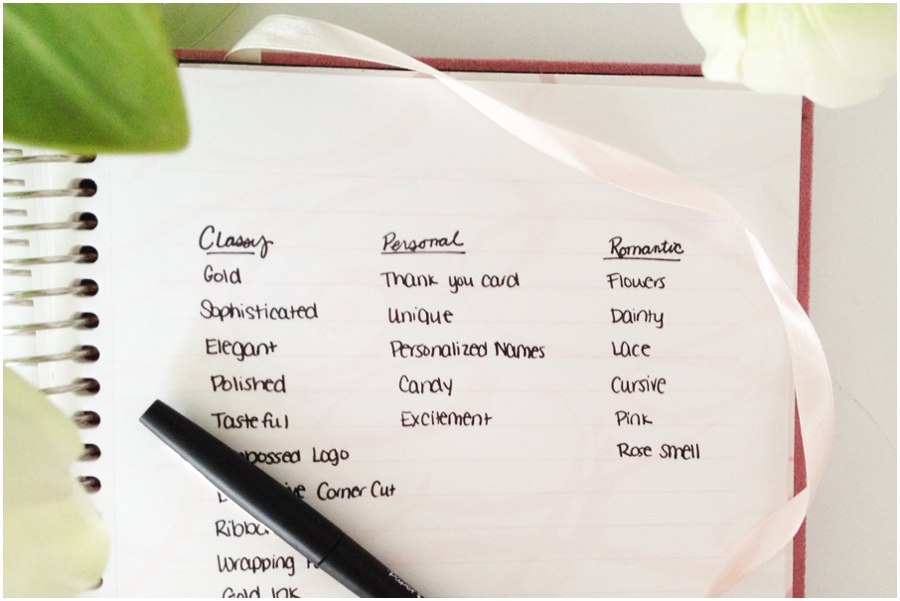 Classy
Gold
Sophisticated
Elegant
Polished
Tasteful
Logo
Corner Cut
Wrapping
Gold Ink
Personal
Thank you card
Unique
Personalized Names
Candy
Excitement
Romantic
Flowers
Dainty
Lace
Cursive
Pink
Rose Smell